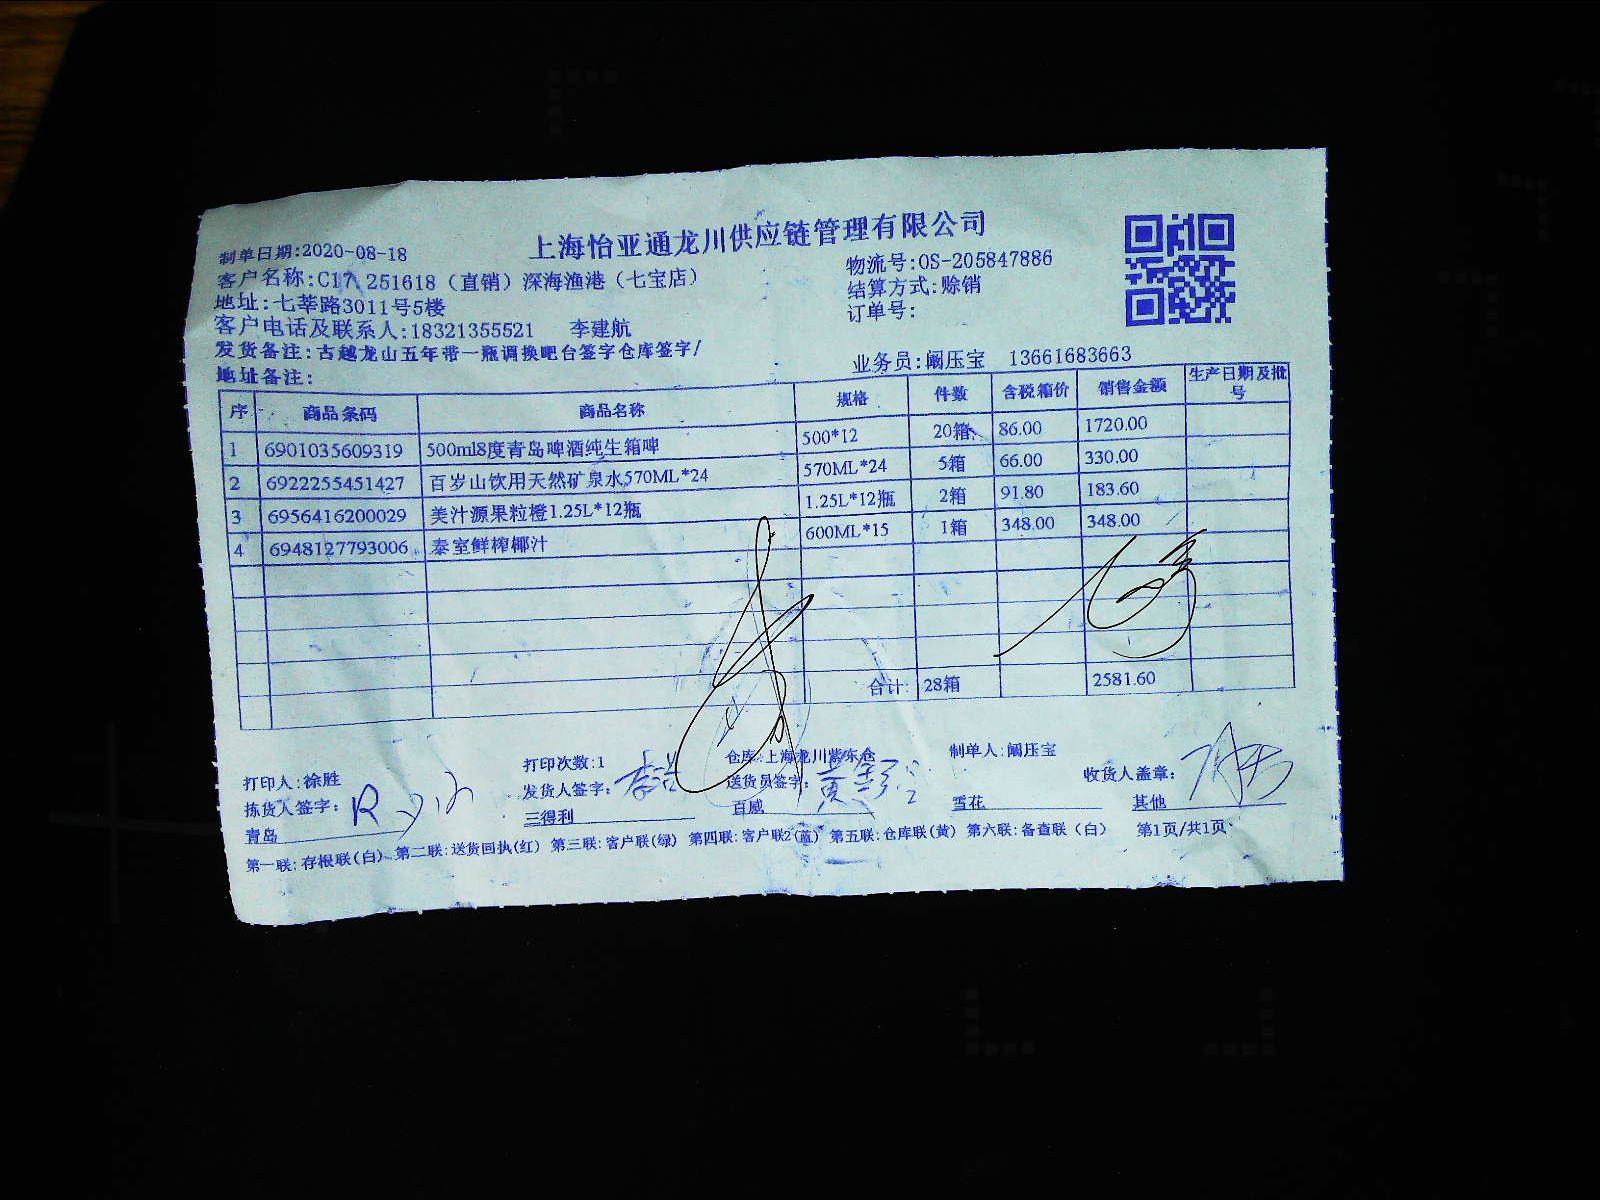 上海怡亚通龙川供应链管理有限公司
制单日期:2020-08-18
客户名称:C17 251618（直销）深海渔港（七宝店） 物流号:OS-205847886
地址:七莘路3011号5楼 结算方式:赊销
客户电话及联系人:18321355521 李建航 订单号:
发货备注:古越龙山五年带一瓶调换吧台签字仓库签字/ 业务员:阚压宝 13661683663
地址备注:
序 商品条码 商品名称 规格 件数 含税箱价 销售金额 生产日期及批号
1 6901035609319 500ml8度青岛啤酒纯生箱啤 500*12 20箱 86.00 1720.00
2 6922255451427 百岁山饮用天然矿泉水570ML*24 570ML*24 5箱 66.00 330.00
3 6956416200029 美汁源果粒橙1.25L*12瓶 1.25L*12瓶 2箱 91.80 183.60
4 6948127793006 泰室鲜榨椰汁 600ML*15 1箱 348.00 348.00
合计: 28箱 2581.60
打印人:徐胜 打印次数:1 仓库:上海龙川紫东仓 制单人:阚压宝 收货人盖章:
拣货人签字: 发货人签字: 送货员签字:
青岛 三得利 百威 雪花 其他
第一联:存根联(白) 第二联:送货回执(红) 第三联:客户联(绿) 第四联:客户联2(蓝) 第五联:仓库联(黄) 第六联:备查联(白) 第1页/共1页